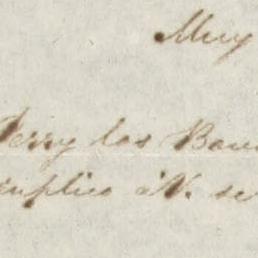 Muy
Perry los Bau
suplico á V. se